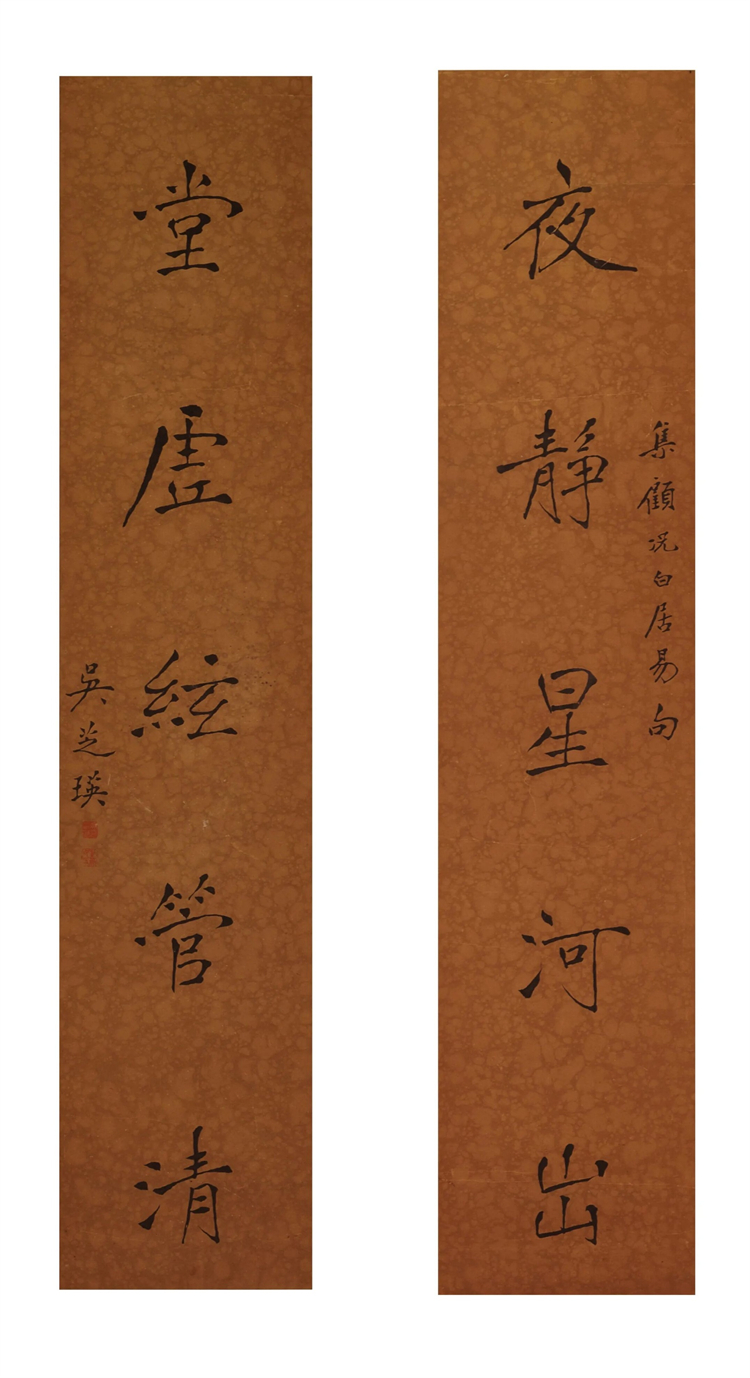 集顧况白居易句
夜靜星河出
堂虛絃管清
吳芝瑛